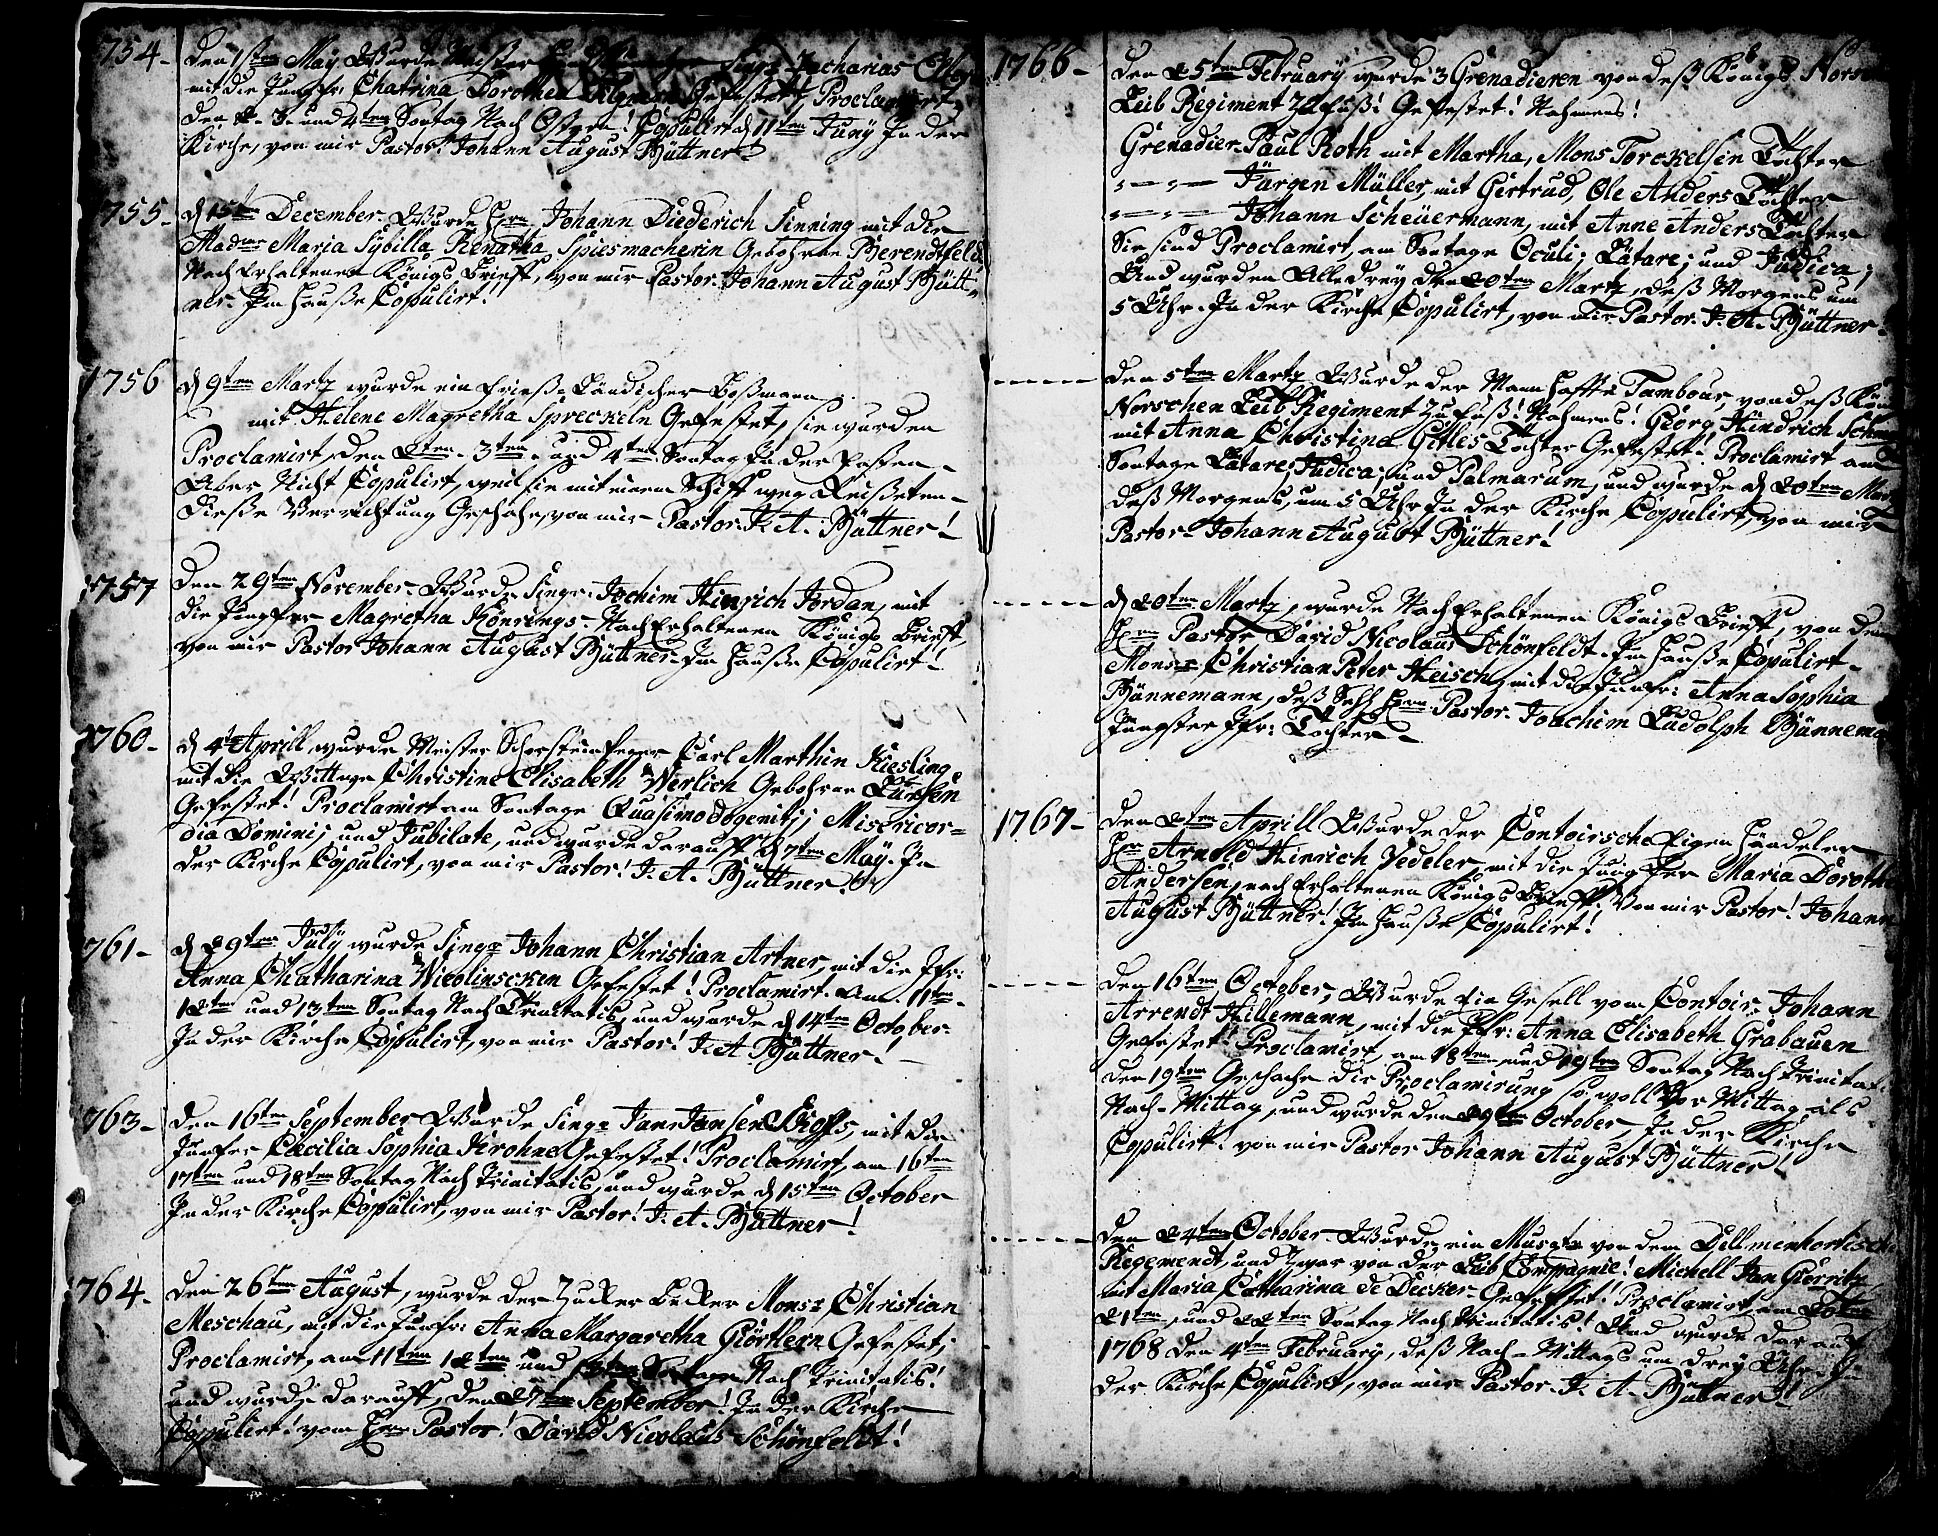 1754-
Den 1sten May Wurde Meister Singr Zacharias
mit die Jungfr: Chatrina Dorothea Gefestet, Proclamirt,
den 2. 3. und 4ten Sontag Nach Ostern! Copulirt d 11ten Juny In der
Kirche, von mir Pastor! Johann August Büttner
1755-
d 15ten December Wurde Hrn Johann Diederich Sinning mit die
Madme Maria Sybilla Renatha Spiesmacherin Gebohrne Berendtfeld
Nach Erhaltenen Königs Brieff, von mir Pastor Johann August Bütt-
ner. Im Hauße Copulirt!
1756
d 9ten Martz wurde ein Frieß-Ländischer Boßmann
mit Helene Magretha Spreckeln Gefestet, sie wurden
Proclamirt, den 2ten - 3ten - und 4ten Sontag In der Fasten-
Aber Nicht Copulirt, weil sie mit einem Schiff weg Reißeten-
Dieße Verrichtung Geschahe, von mir Pastor. J. A. Büttner!
1757
Den 29ten November Wurde Singr Jochim Hinrich Jordan, mit
die Jungfer Magretha Könrings- Nach Erhaltenen Königs Brieff,
von mir Pastor Johann August Büttner. Im Hauße Copulirt!
1760-
d 4t Aprill wurde Meister Schorsteinfeger Carl Marthin Kiesling
mit die Wittwe Christine Elisabeth Werlich Gebohrne Lürssen
Gefestet! Proclamirt am Sontage Quasimodogeniti; Misericor=
dia Domini; und Jubilate, und wurde darauff d 7ten May. In
der Kirche Copulirt, von mir Pastor! J. A. Büttner!
1761-
d 29ten July wurde Singr Johann Christian Artner, mit die Jfr:
Anna Chatharina Nicolinscken Gefestet! Proclamirt. Am 11ten
12ten und 13ten Sontag Nach Trinitatis, und wurde d 14ten October
In der Kirche Copulirt, von mir Pastor! J. A. Büttner!
1763-
Den 16ten September Wurde Singr Jann Jansen, mit die
Junfer Cæcilia Sophia Krohne Gefestet! Proclamirt, am 16ten
17ten und 18ten Sontag Nach Trinitatis, und wurde d 15ten October
In der Kirche Copulirt, von mir Pastor! J. A. Büttner!
1764-
Den 26ten August, wurde der Zucker Becker Monsr Christian
Meschau, mit die Junfr: Anna Margaretha Görthern Gefestet;
Proclamirt, am 11ten 12ten und 13ten Sontag Nach Trinitatis!
und wurde darauff, den 27ten September! In der Kirche
Copulirt! vom Hrn Pastor! David Nicolaus Schönfeldt!
1766-
Den 25ten February wurde 3 Grenadieren von deß Königs Norschen
Leib Regiment Zu Fuß! Gefestet! Nahmens!
Grenadier Paul Roth mit Martha, Mons Torckelsen Tochter
Jürgen Müller, mit Gertrud, Ole Anders Tochter
Johann Scheüermann, mit Anne Anders Tochter
Sie sind Proclamirt, am Sontage Oculi; Lätare; und Judica;
Und wurden Alle drey den 20ten Martz, deß Morgens um
5 Uhr. In der Kirche Copulirt, von mir Pastor. J. A. Büttner
Den 5ten Martz Wurde der Mannhaffte Tambour, von deß
Norschen Leib Regiment Zu Fuß! Nahmens! Giörg Hindrich
mit Anna Christina Gitles Tochter Gefestet! Proclamirt am
Sontage Lätare; Judica; und Palmarum, und wurde d 20ten Martz
deß Morgens, um 5 Uhr In der Kirche Copulirt, von mir
Pastor- Johann August Büttner!
d 20ten Martz, wurde Nach Erhaltenen Königs Brieff, von dem
Hrn Pastor David Nicolaus Schönfeldt. Im Hauße Copulirt-
Monsr Christian Peter Heisch mit die Junfr: Anna Sophia
Bünnemann, deß Sehl Hrn Pastor. Joachim Ludolph Bünnemann
Jüngster Jfr: Tochter-
1767-
Den 2ten Aprill Wurde der Contoirsche Eigen Händeler
Hrn Arnold Hinrich Vedeler, mit die Jungfer Maria Doroth
Andersen, nach Erhaltenen Königs Brieff! Von mir Pastor! Johann
August Büttner! Im Hauße Copulirt!
Den 16ten October, Wurde Ein Gesell vom Contoir. Johann
Arrendt Hillemann, mit die Jfr: Anna Elisabeth Grabauen
Gefestet! Proclamirt, am 18ten und 19ten Sontag Nach Trinitat.
den 19ten Geschahe die Proclamirung so, woll Vor Mittag als
Nach-Mittag, und wurde den 29ten October In der Kirche
Copulirt. von mir Pastor Johann August Büttner!
Den 24ten October. Wurde ein Musqtr von dem Dellmenhortisch
Regemendt, und Zwar von der Leib Compagnie! Michell Jan Giörritz
mit Maria Catharina de Decker Gefestet! Proclamirt, am 20ten
21ten und 22ten Sontag Nach Trinitatis! Und wurde darauf
1768 den 4ten February, deß Nach-Mittags um drey Uhr. In
der Kirche Copulirt, von mir Pastor J. A. Büttner!